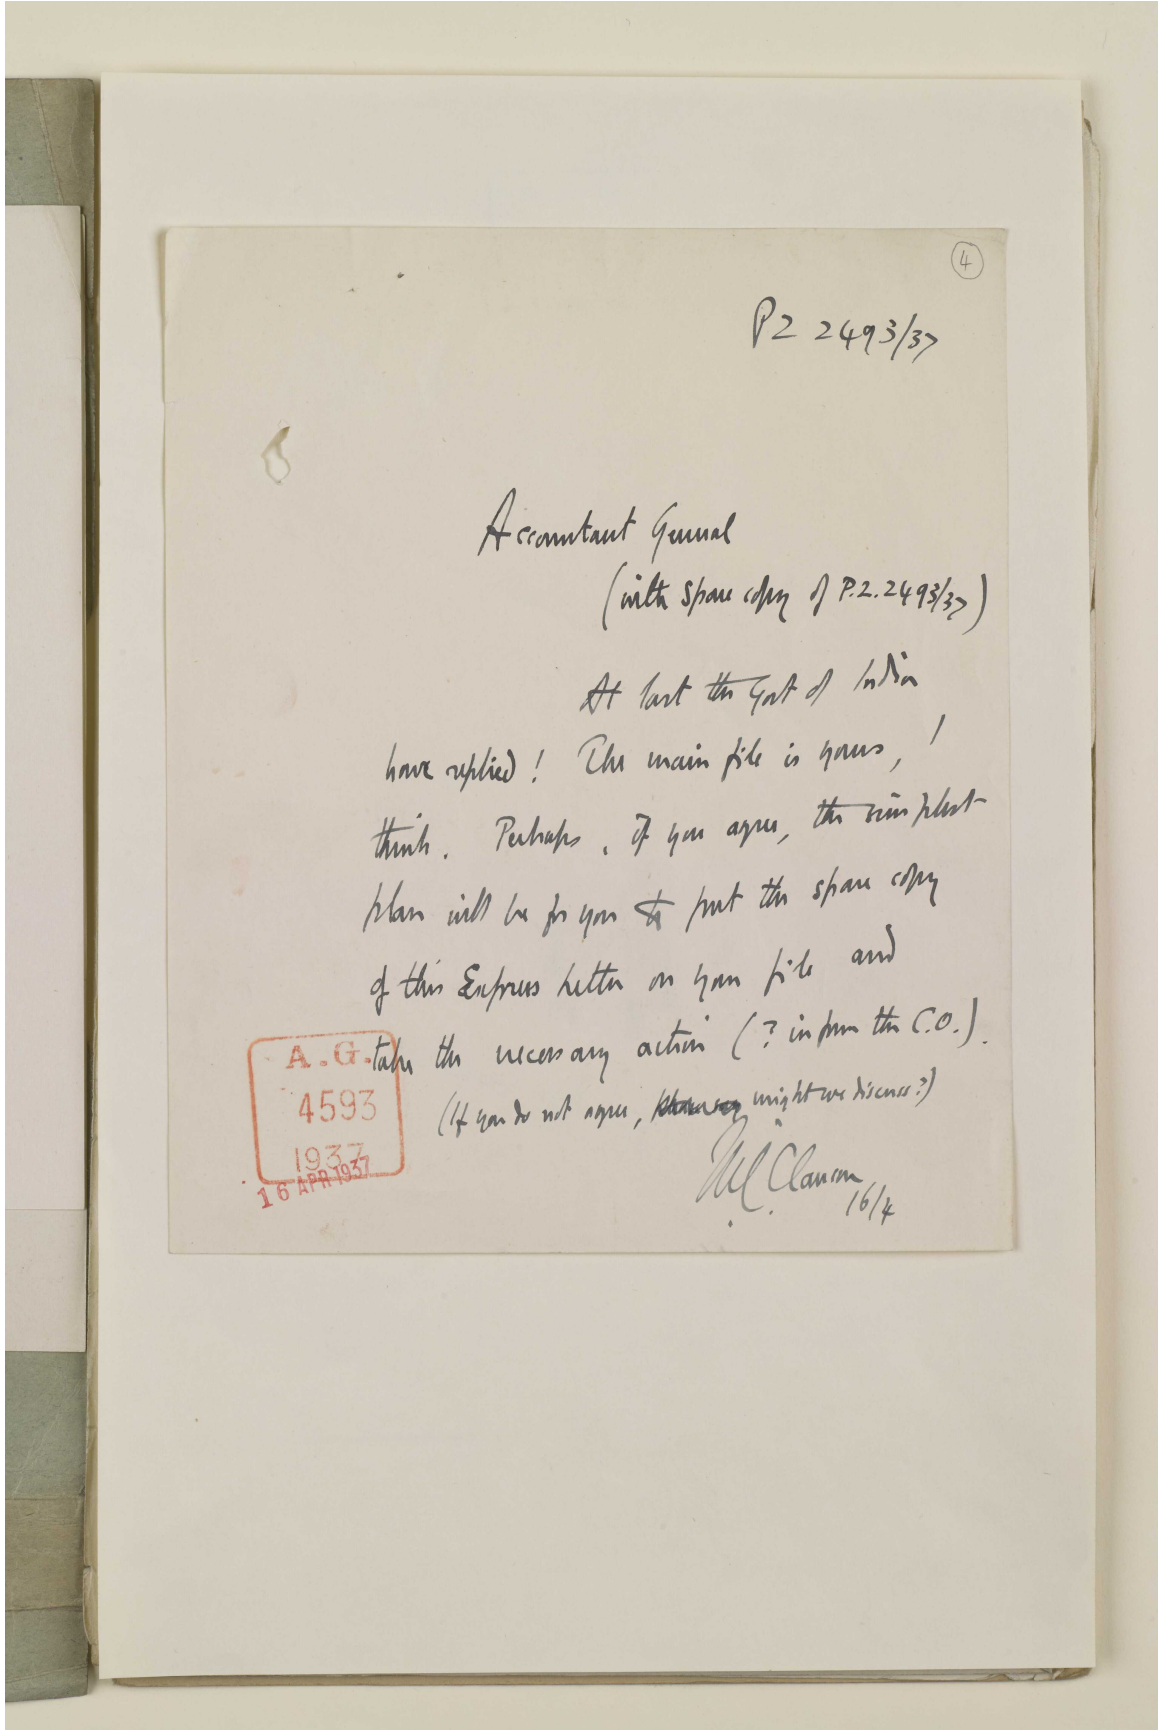 4
PZ 2493/37
Accountant General
(with spare copy of P.Z. 2493/37)
At last the Govt of India
have replied! The main file is yours, I
think. Perhaps, if you agree, the simplest
plan will be for you to put the spare copy
of this Express Letter on your file and
take the necessary action (? inform the C.O.).
(If you do not agree, might we discuss?)
A.G.
4593
1937
16 APR 1937
Clauson
16/4